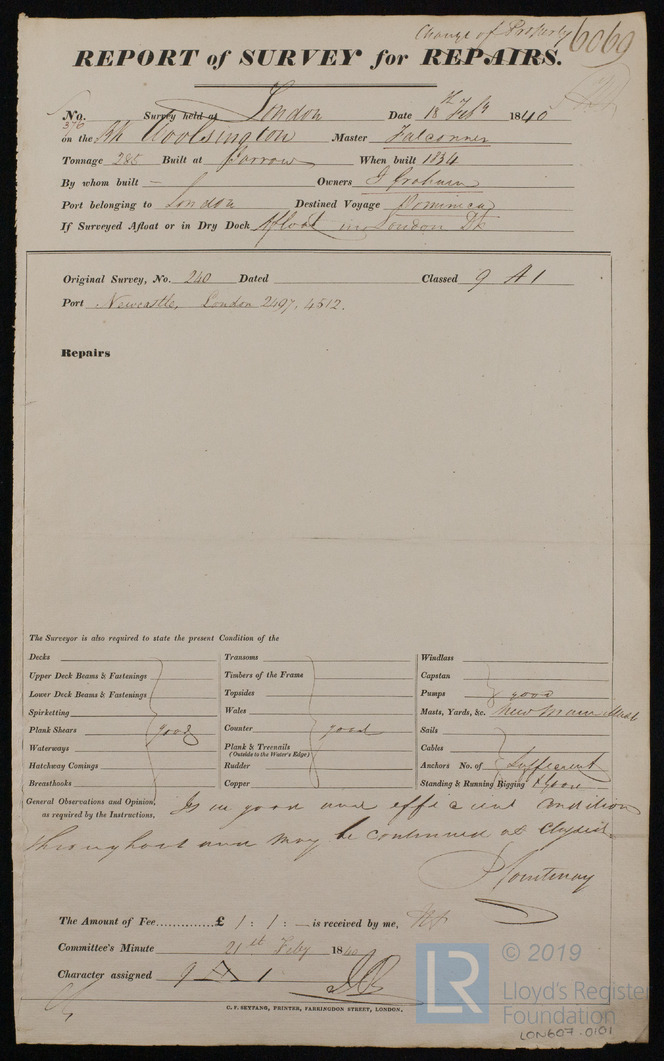 Change of Property 6060
REPORT of SURVEY for REPAIRS.
No. 376 Survey held at London Date 18th Feby 1840
on the Bk Woolsington Master Falconner
Tonnage 285 Built at Jarrow When built 1834
By whom built — Owners J Graham
Port belonging to London Destined Voyage Dominica
If Surveyed Afloat or in Dry Dock Afloat in London Dk
Original Survey, No. 240 Dated Classed 9 A 1
Port Newcastle, London 2497, 4512.
Repairs
The Surveyor is also required to state the present Condition of the
Decks
Upper Deck Beams & Fastenings
Lower Deck Beams & Fastenings
Spirketting
Plank Shears good
Waterways
Hatchway Comings
Breasthooks
Transoms
Timbers of the Frame
Topsides
Wales
Counter good
Plank & Treenails
(Outside to the Water's Edge)
Rudder
Copper
Windlass
Capstan
Pumps good
Masts, Yards, &c. New Main Mast
Sails
Cables
Anchors No. of Sufficient
Standing & Running Rigging & good
General Observations and Opinion, Is in good and efficient condition
as required by the Instructions.
throughout and may be continued as Classed
P Courtenay
The Amount of Fee.............. £ 1 : 1 : — is received by me,
Committee's Minute 21st Feby 1840
Character assigned 9 A 1
C. F. SEYFANG, PRINTER, FARRINGDON STREET, LONDON.
LR © 2019
Lloyd's Register
Foundation
LON607-0101